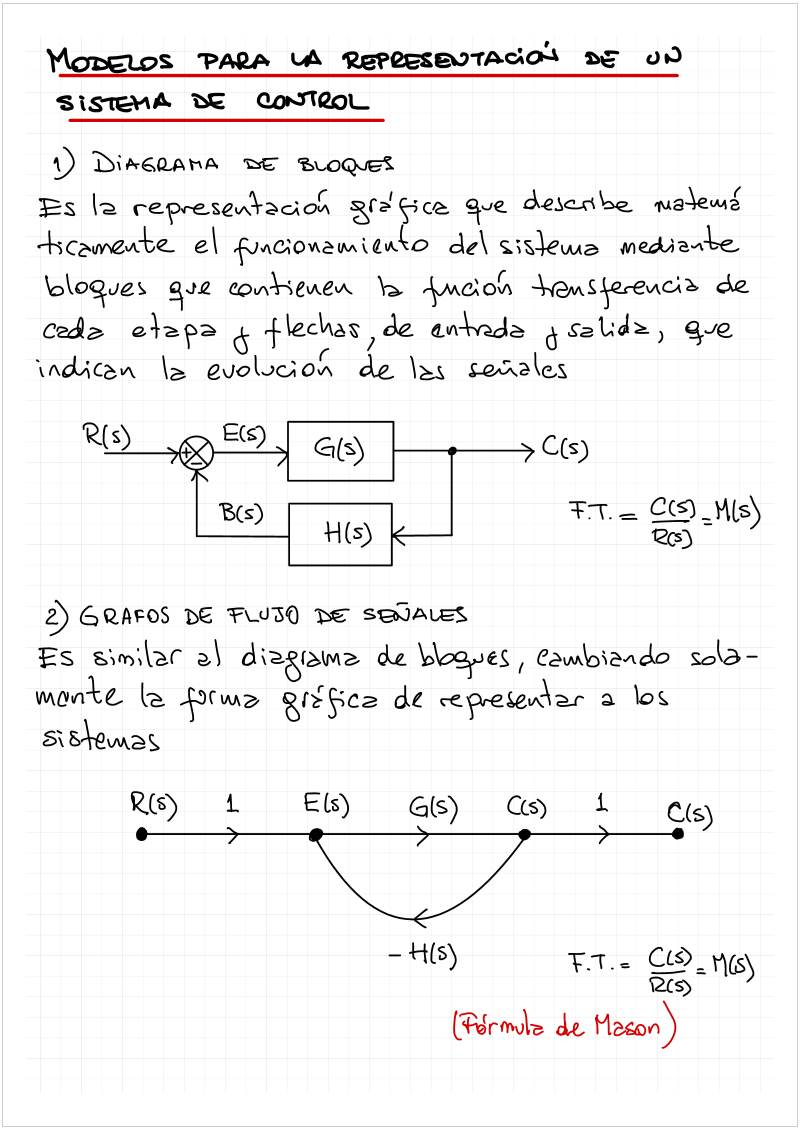 MODELOS PARA LA REPRESENTACIÓN DE UN
SISTEMA DE CONTROL
1) DIAGRAMA DE BLOQUES
Es la representación gráfica que describe matemá
ticamente el funcionamiento del sistema mediante
bloques que contienen la función transferencia de
cada etapa y flechas, de entrada y salida, que
indican la evolución de las señales
R(s) + - E(s) G(s) C(s)
B(s) H(s)
F.T. = C(s)/R(s) = M(s)
2) GRAFOS DE FLUJO DE SEÑALES
Es similar al diagrama de bloques, cambiando sola-
mente la forma gráfica de representar a los
sistemas
R(s) 1 E(s) G(s) C(s) 1 C(s)
-H(s)
F.T. = C(s)/R(s) = M(s)
(Fórmula de Mason)